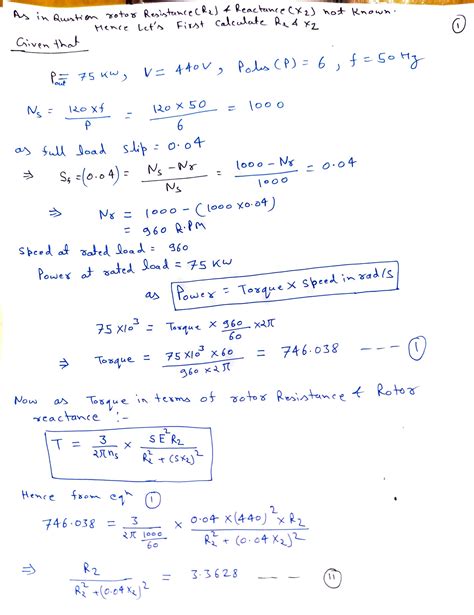 As in Question rotor Resistance (R2) & Reactance (X2) not known.
Hence Let's First Calculate R2 & X2
①
Given that
Pout = 75 KW, V = 440V, Poles (P) = 6, f = 50 Hz
Ns = 120 x f / P = 120 x 50 / 6 = 1000
as full load slip = 0.04
⇒ Sf = (0.04) = Ns - Nr / Ns = 1000 - Nr / 1000 = 0.04
⇒ Nr = 1000 - (1000 x 0.04)
= 960 R.P.M
speed at rated load = 960
Power at rated load = 75 KW
as Power = Torque x speed in rad/s
75 x 10^3 = Torque x 960 / 60 x 2π
⇒ Torque = 75 x 10^3 x 60 / 960 x 2π = 746.038 --- ①
Now as Torque in terms of rotor Resistance & Rotor
reactance :-
T = 3 / 2πns x SE^2R2 / R2^2 + (SX2)^2
Hence from eqn ①
746.038 = 3 / 2π 1000/60 x 0.04 x (440)^2 x R2 / R2^2 + (0.04 X2)^2
⇒ R2 / R2^2 + (0.04X2)^2 = 3.3628 --- ⑪